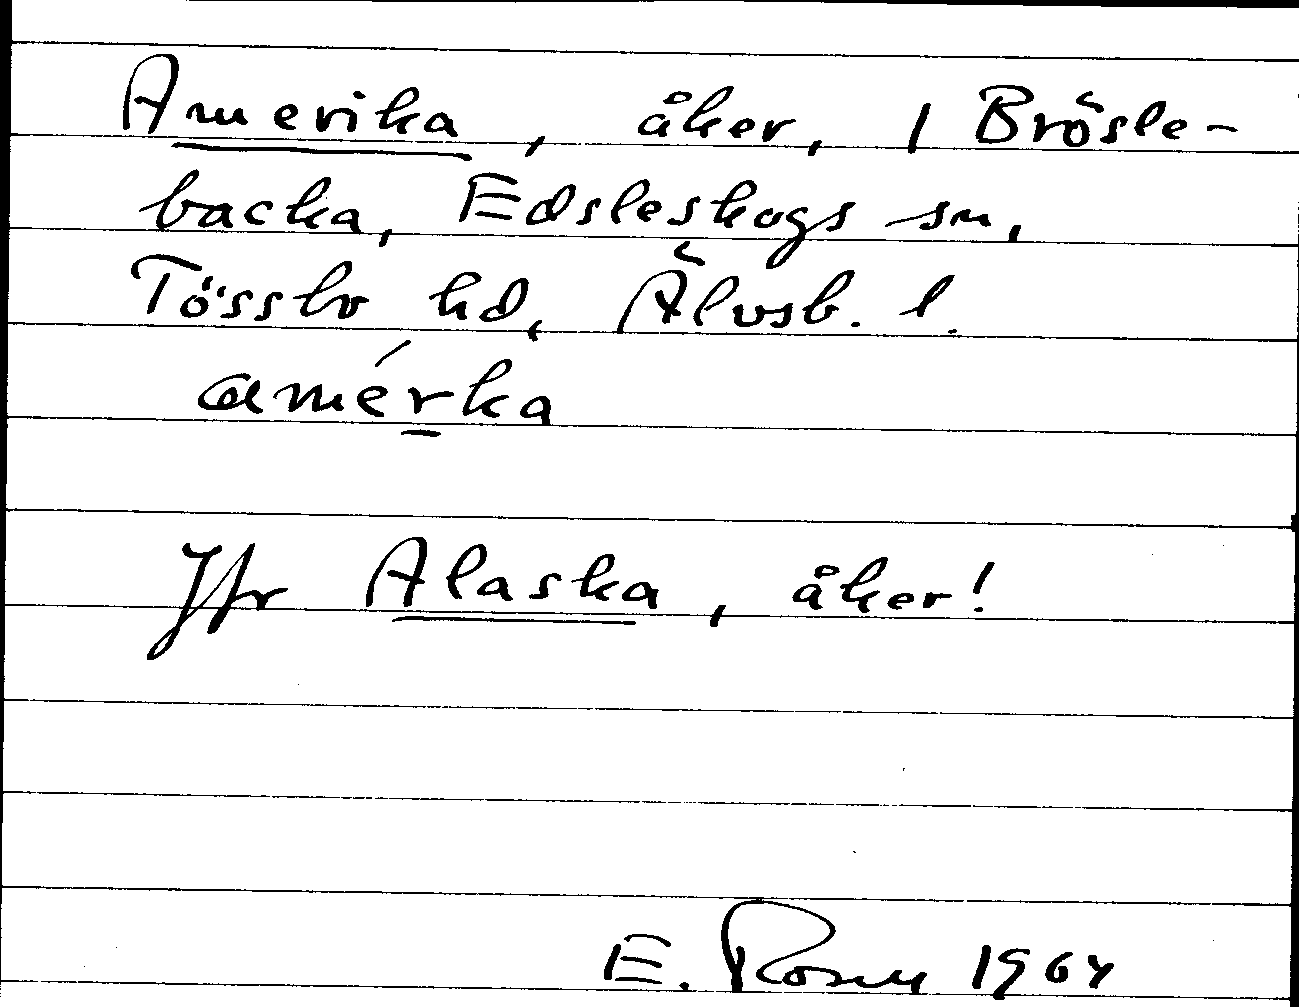 Amerika, åker, 1 Brösle-
backa, Edsleskogs sn,
Tössbo hd, Älvsb. l.
amérka
Jfr Alaska, åker!
E. Rosell 1964